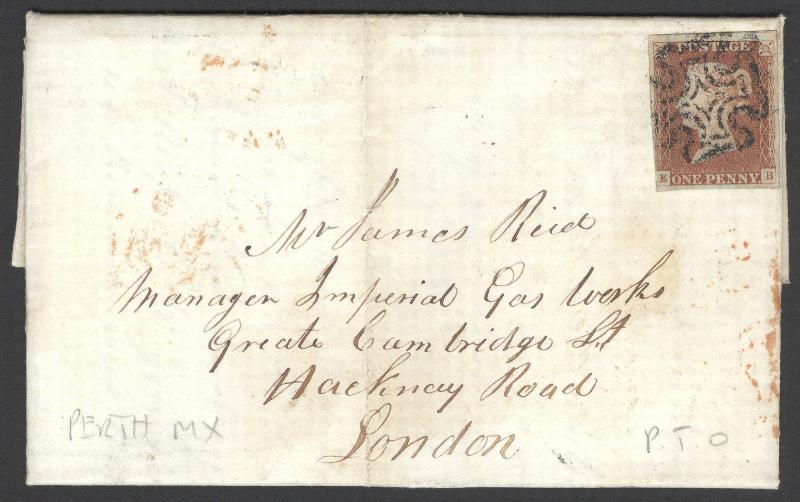 POSTAGE
E ONE PENNY B
Mr James Reid
Manager Imperial Gas Works
Great Cambridge St
Hacknay Road
London
PERTH MX
P.T.O